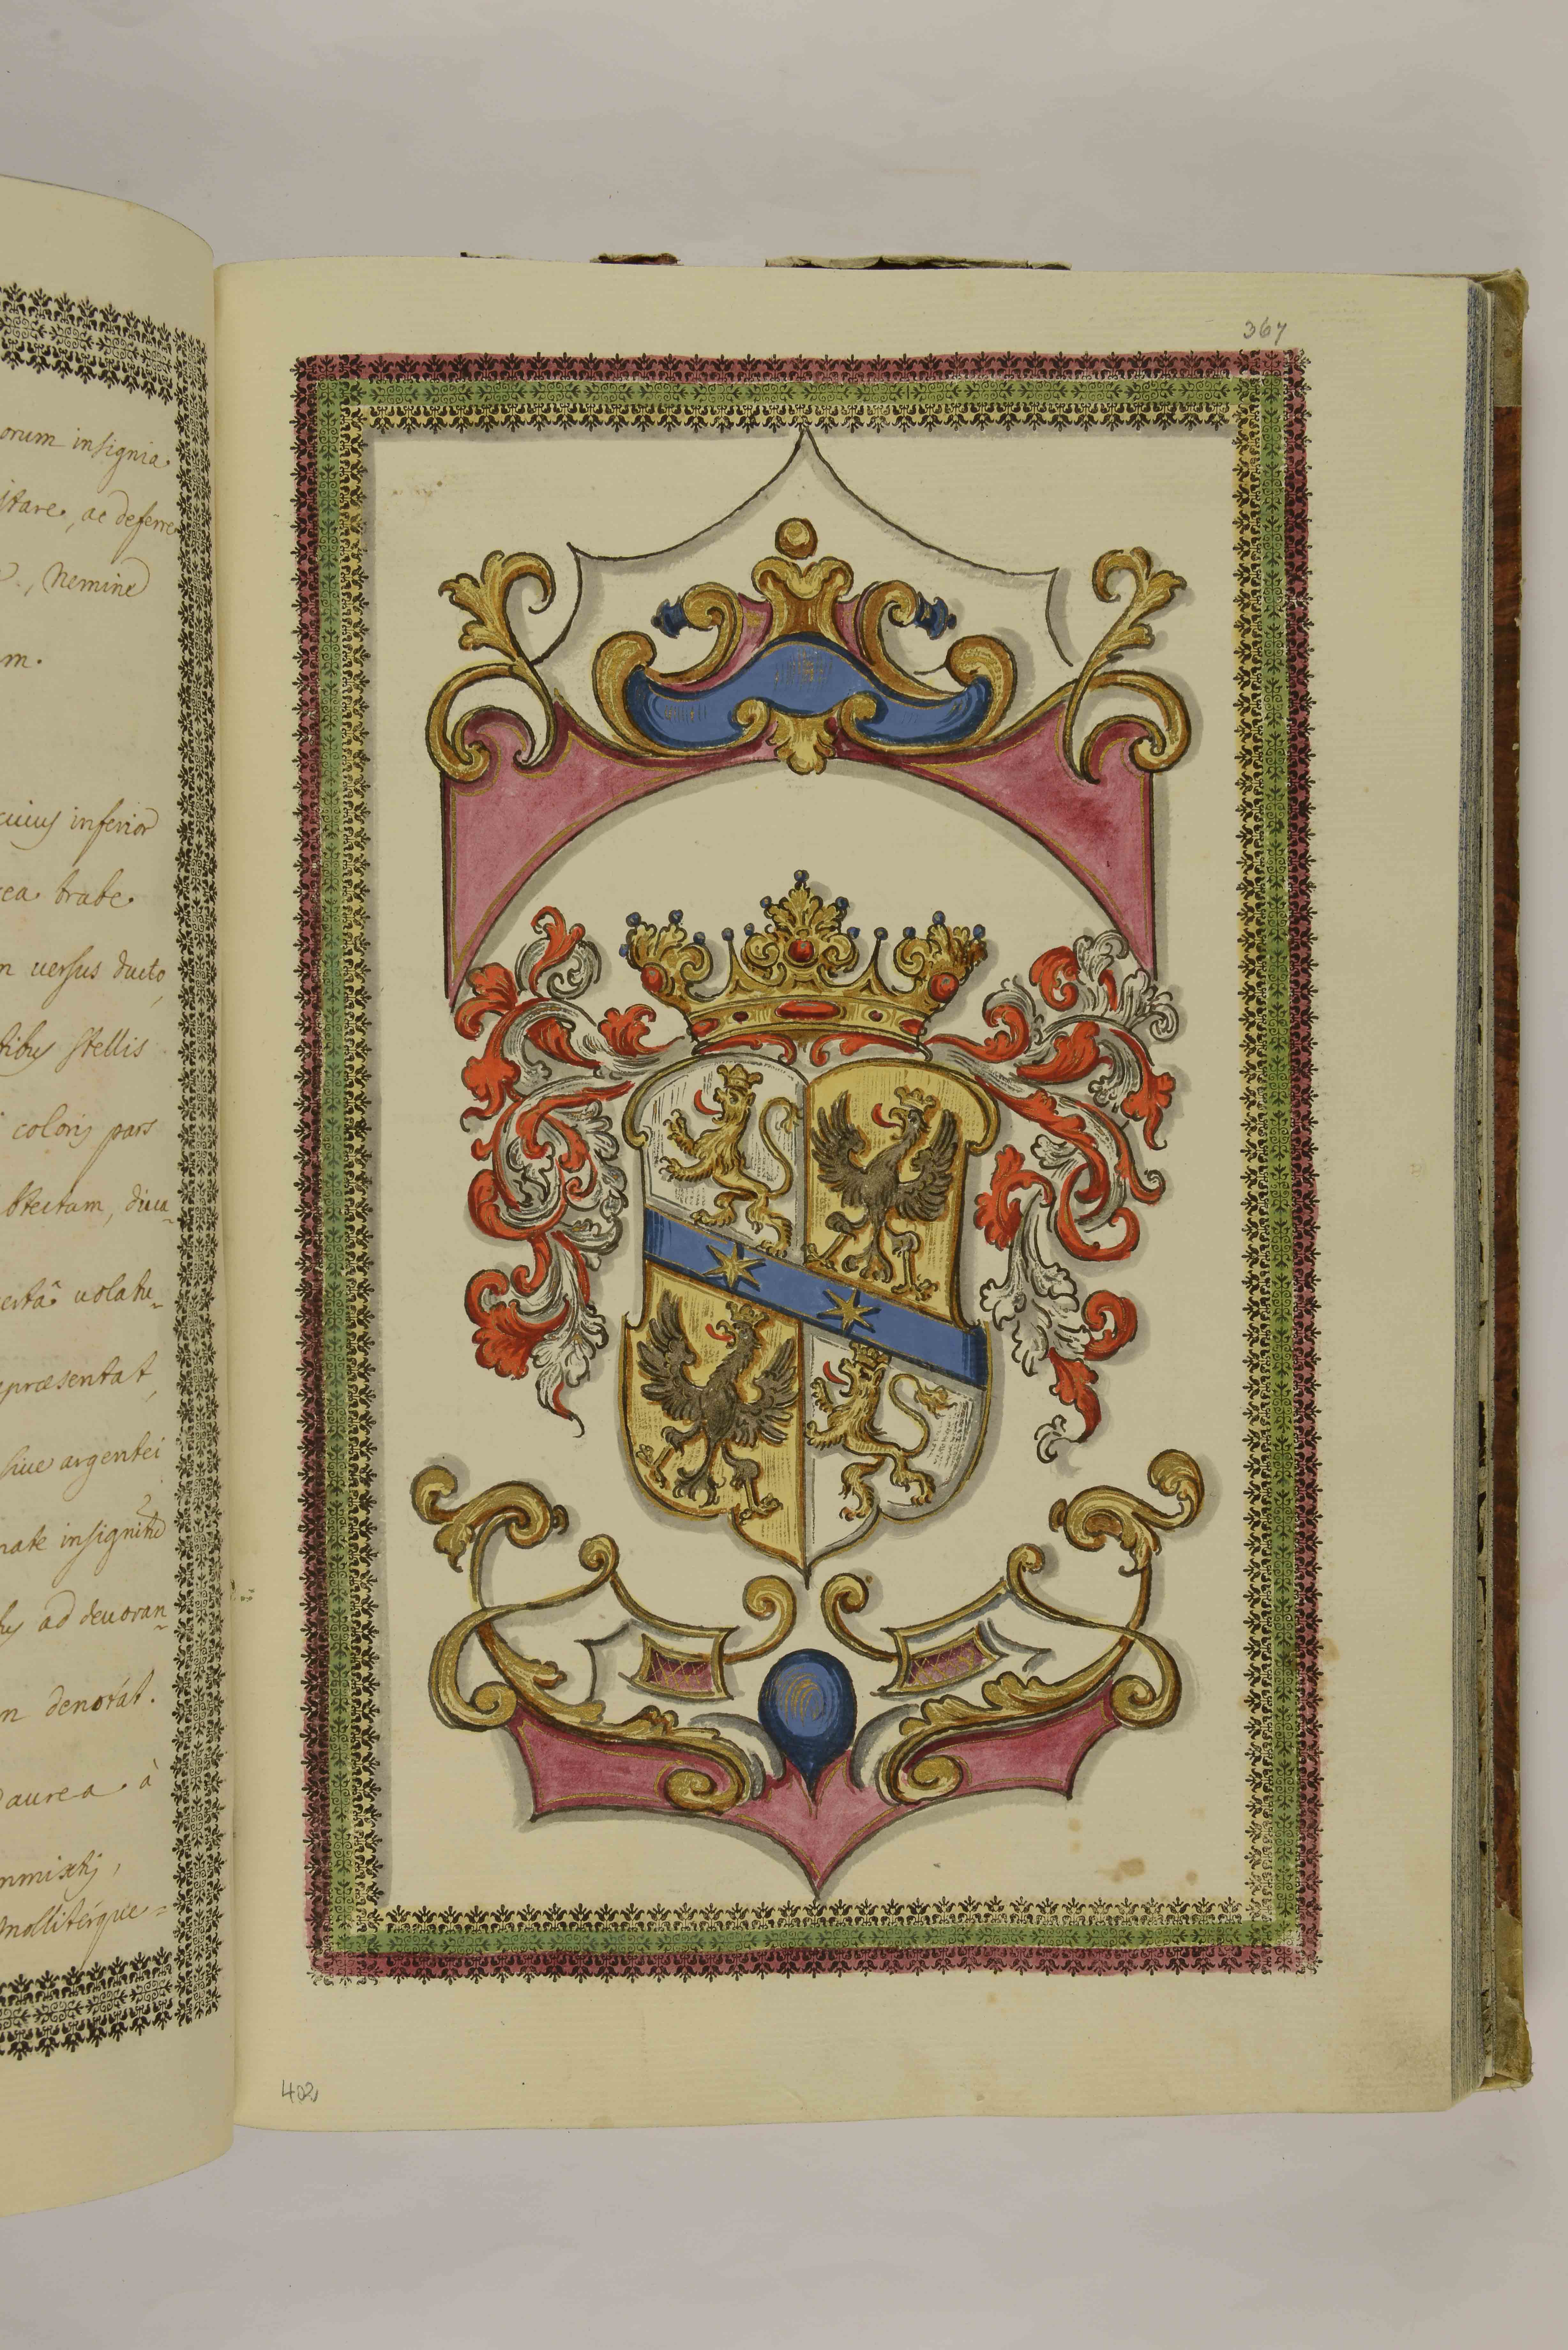 orum insignia
itare, ac deferre
, Nemine
m.
cuius inferior
ea trabe
n uersus ducto,
tibus stellis
coloris pars
tectam, dua-
erta uolatu-
epræsentat,
siue argentei
nate insignitu
us ad deuoran-
n denotat.
aurea à
mmixtis,
molliterque=
367
402